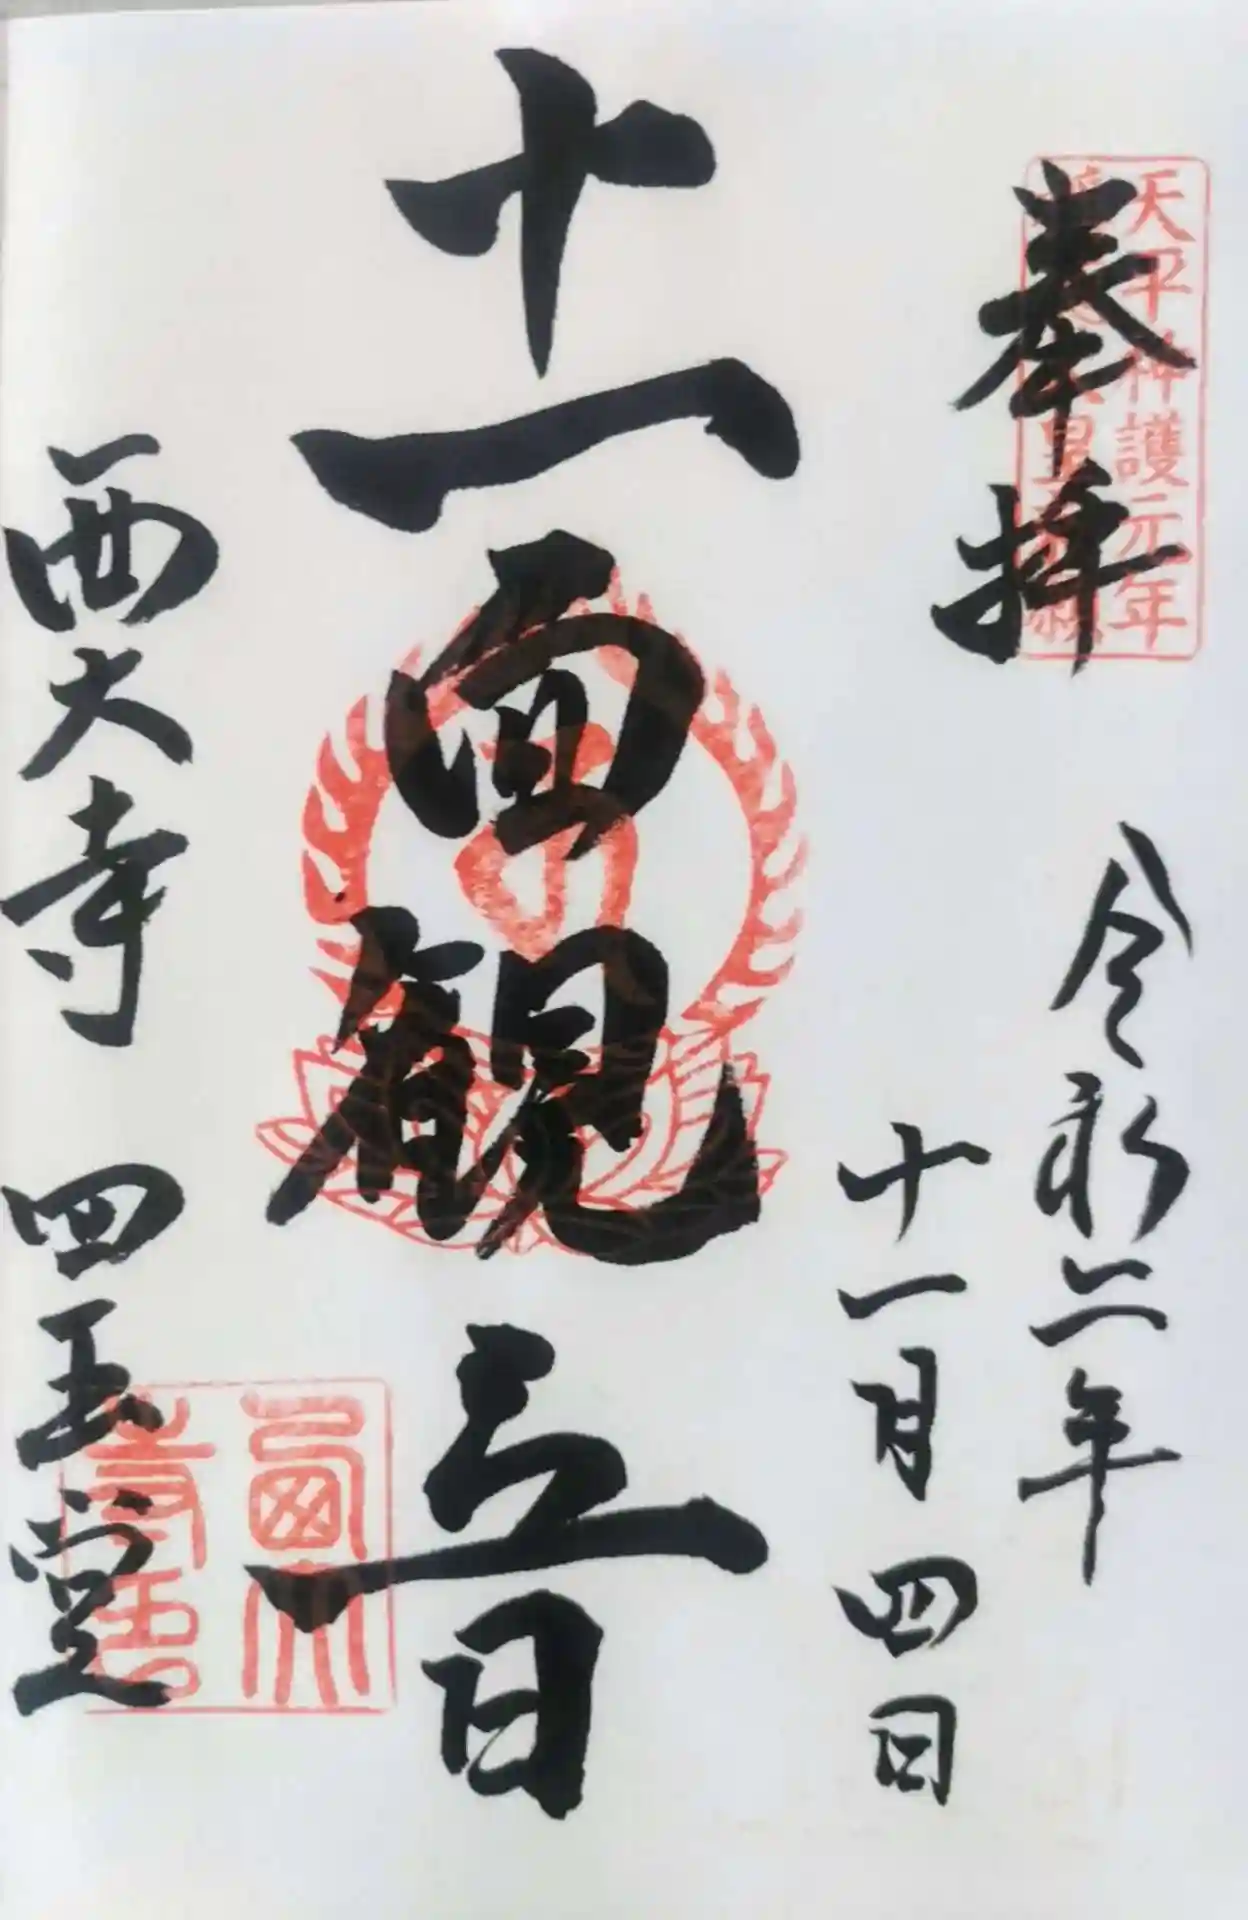 天平神護元年
奉拝
令和二年
十一月四日
十一面観音
西大寺 四王堂